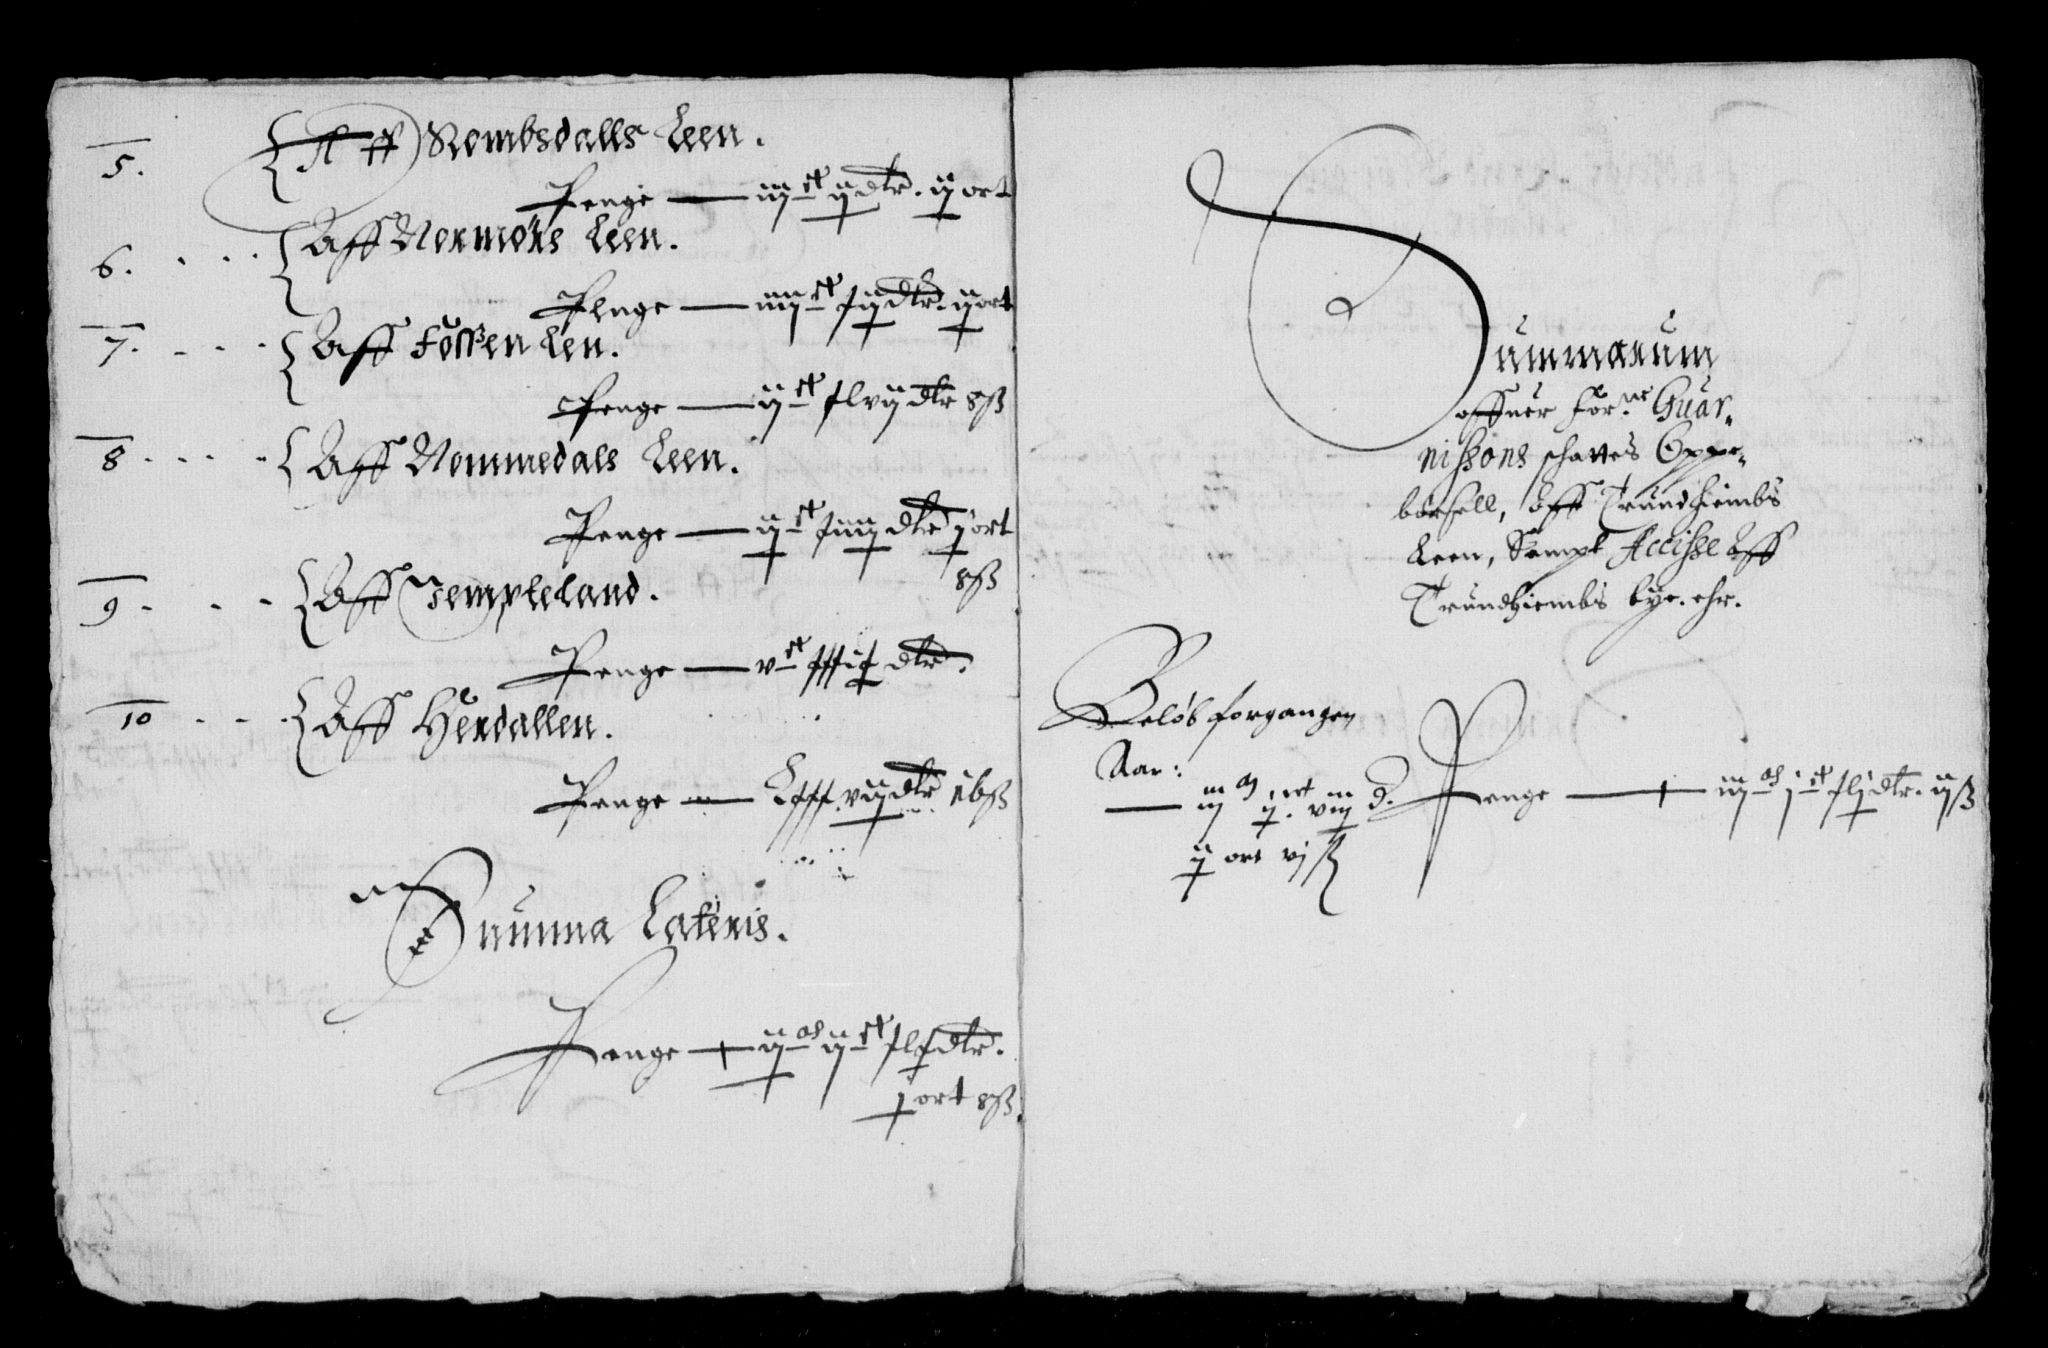 5. Aff Rombsdalls Leen.
Penge — iij c ij dlr. ij ort
6. Aff Nermörs Leen.
Penge — iiij c xij dlr. ij ort
7. Aff Fossen Len.
Penge — ij c xlvij dlr 8 ß
8 Aff Nommedals Leen.
Penge — ij c xiiij dlr j ort
8 ß
9. Aff Jempteland.
Penge — v c dlr.
10 Aff Herdallen.
Penge — Lxxx vij dlr 16 ß
Summa Lateris.
Penge — ij m ij c dlr.
j ort 8 ß.
Summarum
offuer Forne Guar-
nissons schattes Oppe-
börsell, Aff Trundhiembs
Leen, Sampt Accisse Aff
Trundhiembs bye. ehr.
Belöb forgangen
Aar:
— iij m j c viij d.
ij ort vj ß
Penge — iij m j c xlj dlr. ij ß